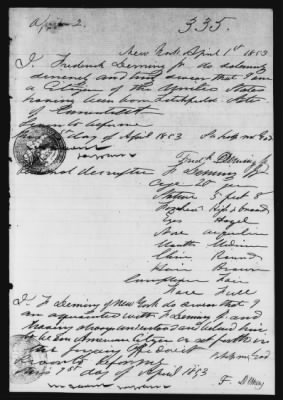 April 2.
335.
New York April 1st 1853
I, Frederick Deming Jr. do solemnly
sincerely and truly swear that I am
a Citizen of the United States
having been born Litchfield State
of Connecticut
Sworn to before me
day of April 1853 So help me God
Fredk Deming Jr
Personal description F Deming Jr
Age 20 years
Stature 5 feet 8
Forehead High & broad
Eyes Hazel
Nose aquiline
Mouth Medium
Chin Round
Hair Brown
Complexion Fair
Face Full
I F Deming of New York do swear that I
am acquainted with F Deming Jr. and
him
to be an American Citizen as set forth in
the forgoing affidavit
So help me God
Sworn to before me
1st day of April 1853
F. Deming